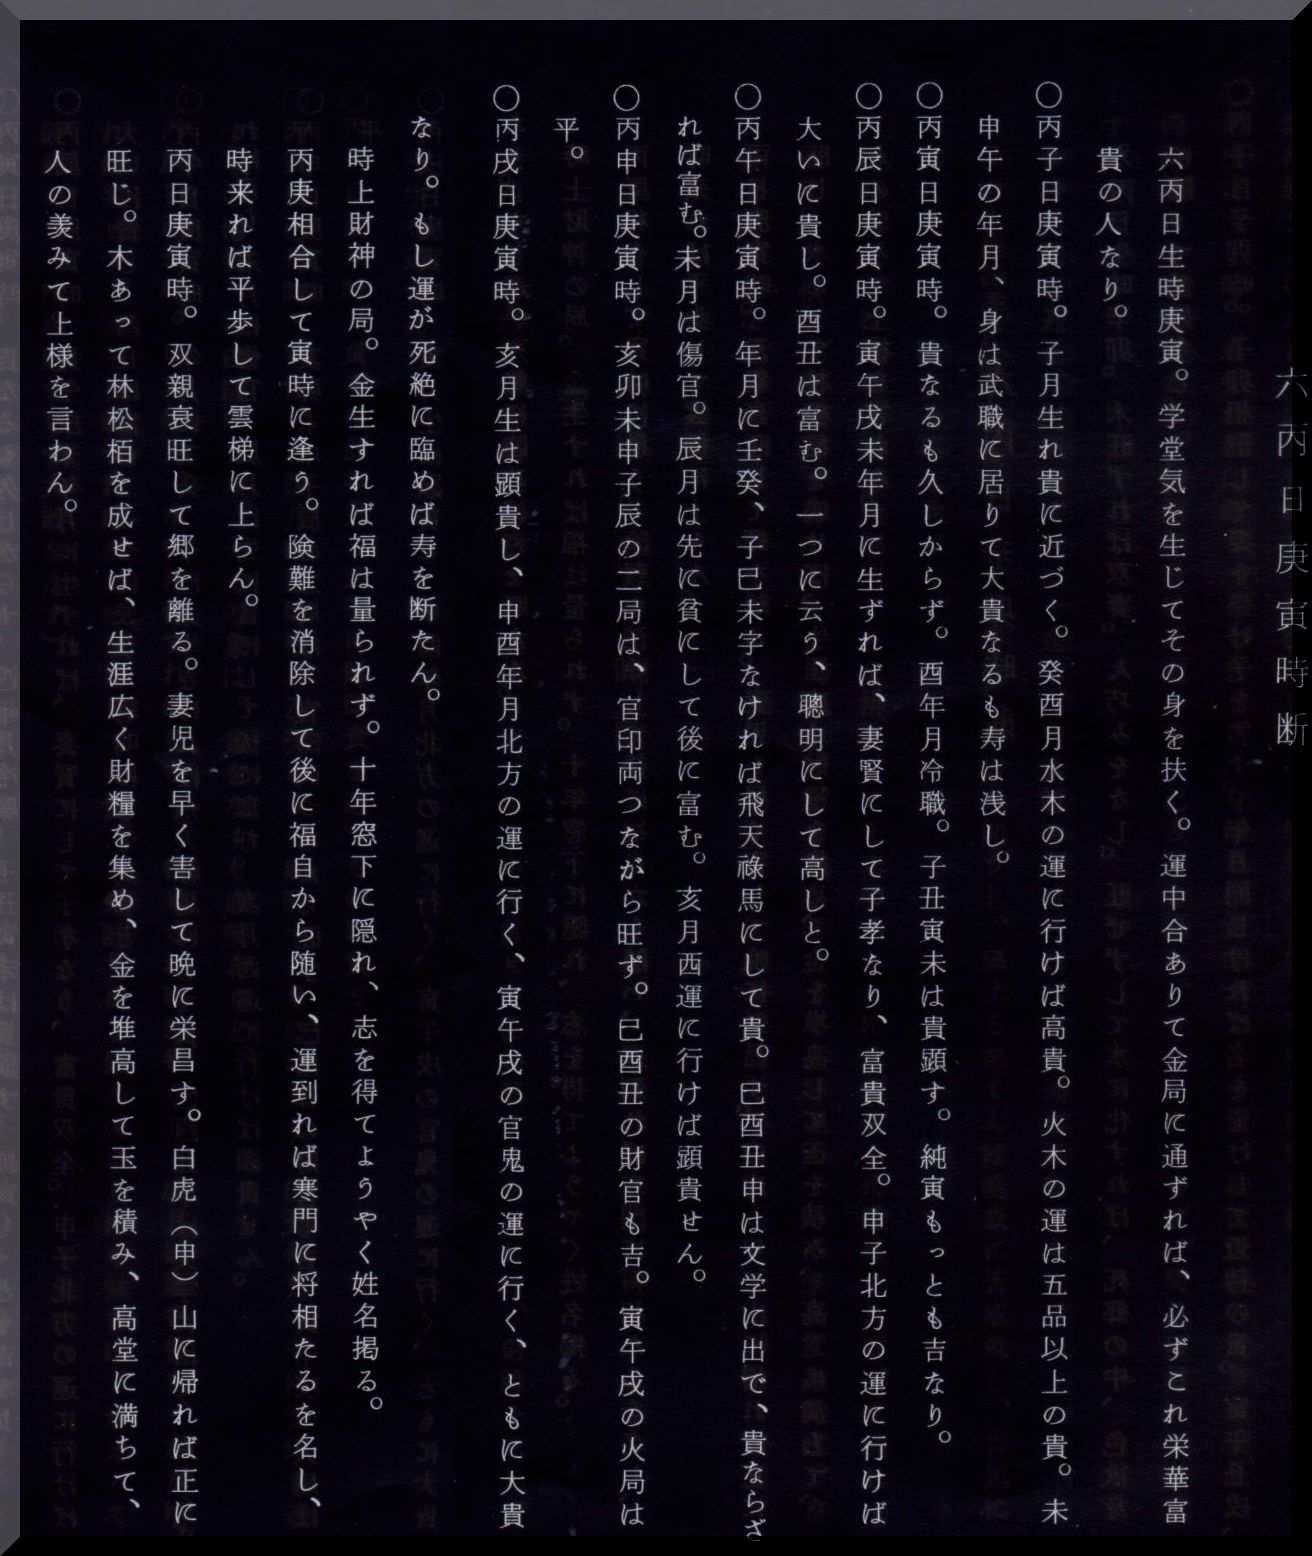 六丙日庚寅時断
六丙日生時庚寅。学堂気を生じてその身を扶く。運中合ありて金局に通ずれば、必ずこれ栄華富
貴の人なり。
〇丙子日庚寅時。子月生れ貴に近づく。癸酉月水木の運に行けば高貴。火木の運は五品以上の貴。未
申午の年月、身は武職に居りて大貴なるも寿は浅し。
〇丙寅日庚寅時。貴なるも久しからず。酉年月冷職。子丑寅未は貴顕す。純寅もっとも吉なり。
〇丙辰日庚寅時。寅午戌未年月に生ずれば、妻賢にして子孝なり、富貴双全。申子北方の運に行けば
大いに貴し。酉丑は富む。一つに云う、聰明にして高しと。
〇丙午日庚寅時。年月に壬癸、子巳未字なければ飛天祿馬にして貴。巳酉丑申は文学に出で、貴ならざ
れば富む。未月は傷官。辰月は先に貧にして後に富む。亥月西運に行けば顕貴せん。
〇丙申日庚寅時。亥卯未申子辰の二局は、官印両つながら旺ず。巳酉丑の財官も吉。寅午戌の火局は
平。
〇丙戌日庚寅時。亥月生は顕貴し、申酉年月北方の運に行く、寅午戌の官鬼の運に行く、ともに大貴
なり。もし運が死絶に臨めば寿を断たん。
時上財神の局。金生すれば福は量られず。十年窓下に隠れ、志を得てようやく姓名掲る。
丙庚相合して寅時に逢う。険難を消除して後に福自から随い、運到れば寒門に将相たるを名し、
時来れば平歩して雲梯に上らん。
丙日庚寅時。双親衰旺して郷を離る。妻児を早く害して晩に栄昌す。白虎（申）山に帰れば正に
旺じ。木あって林松栢を成せば、生涯広く財糧を集め、金を堆高して玉を積み、高堂に満ちて、
人の羨みて上様を言わん。